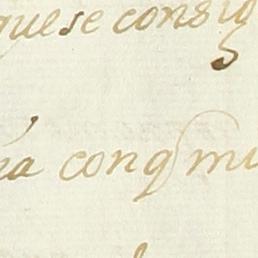 quese consig
na conq mu